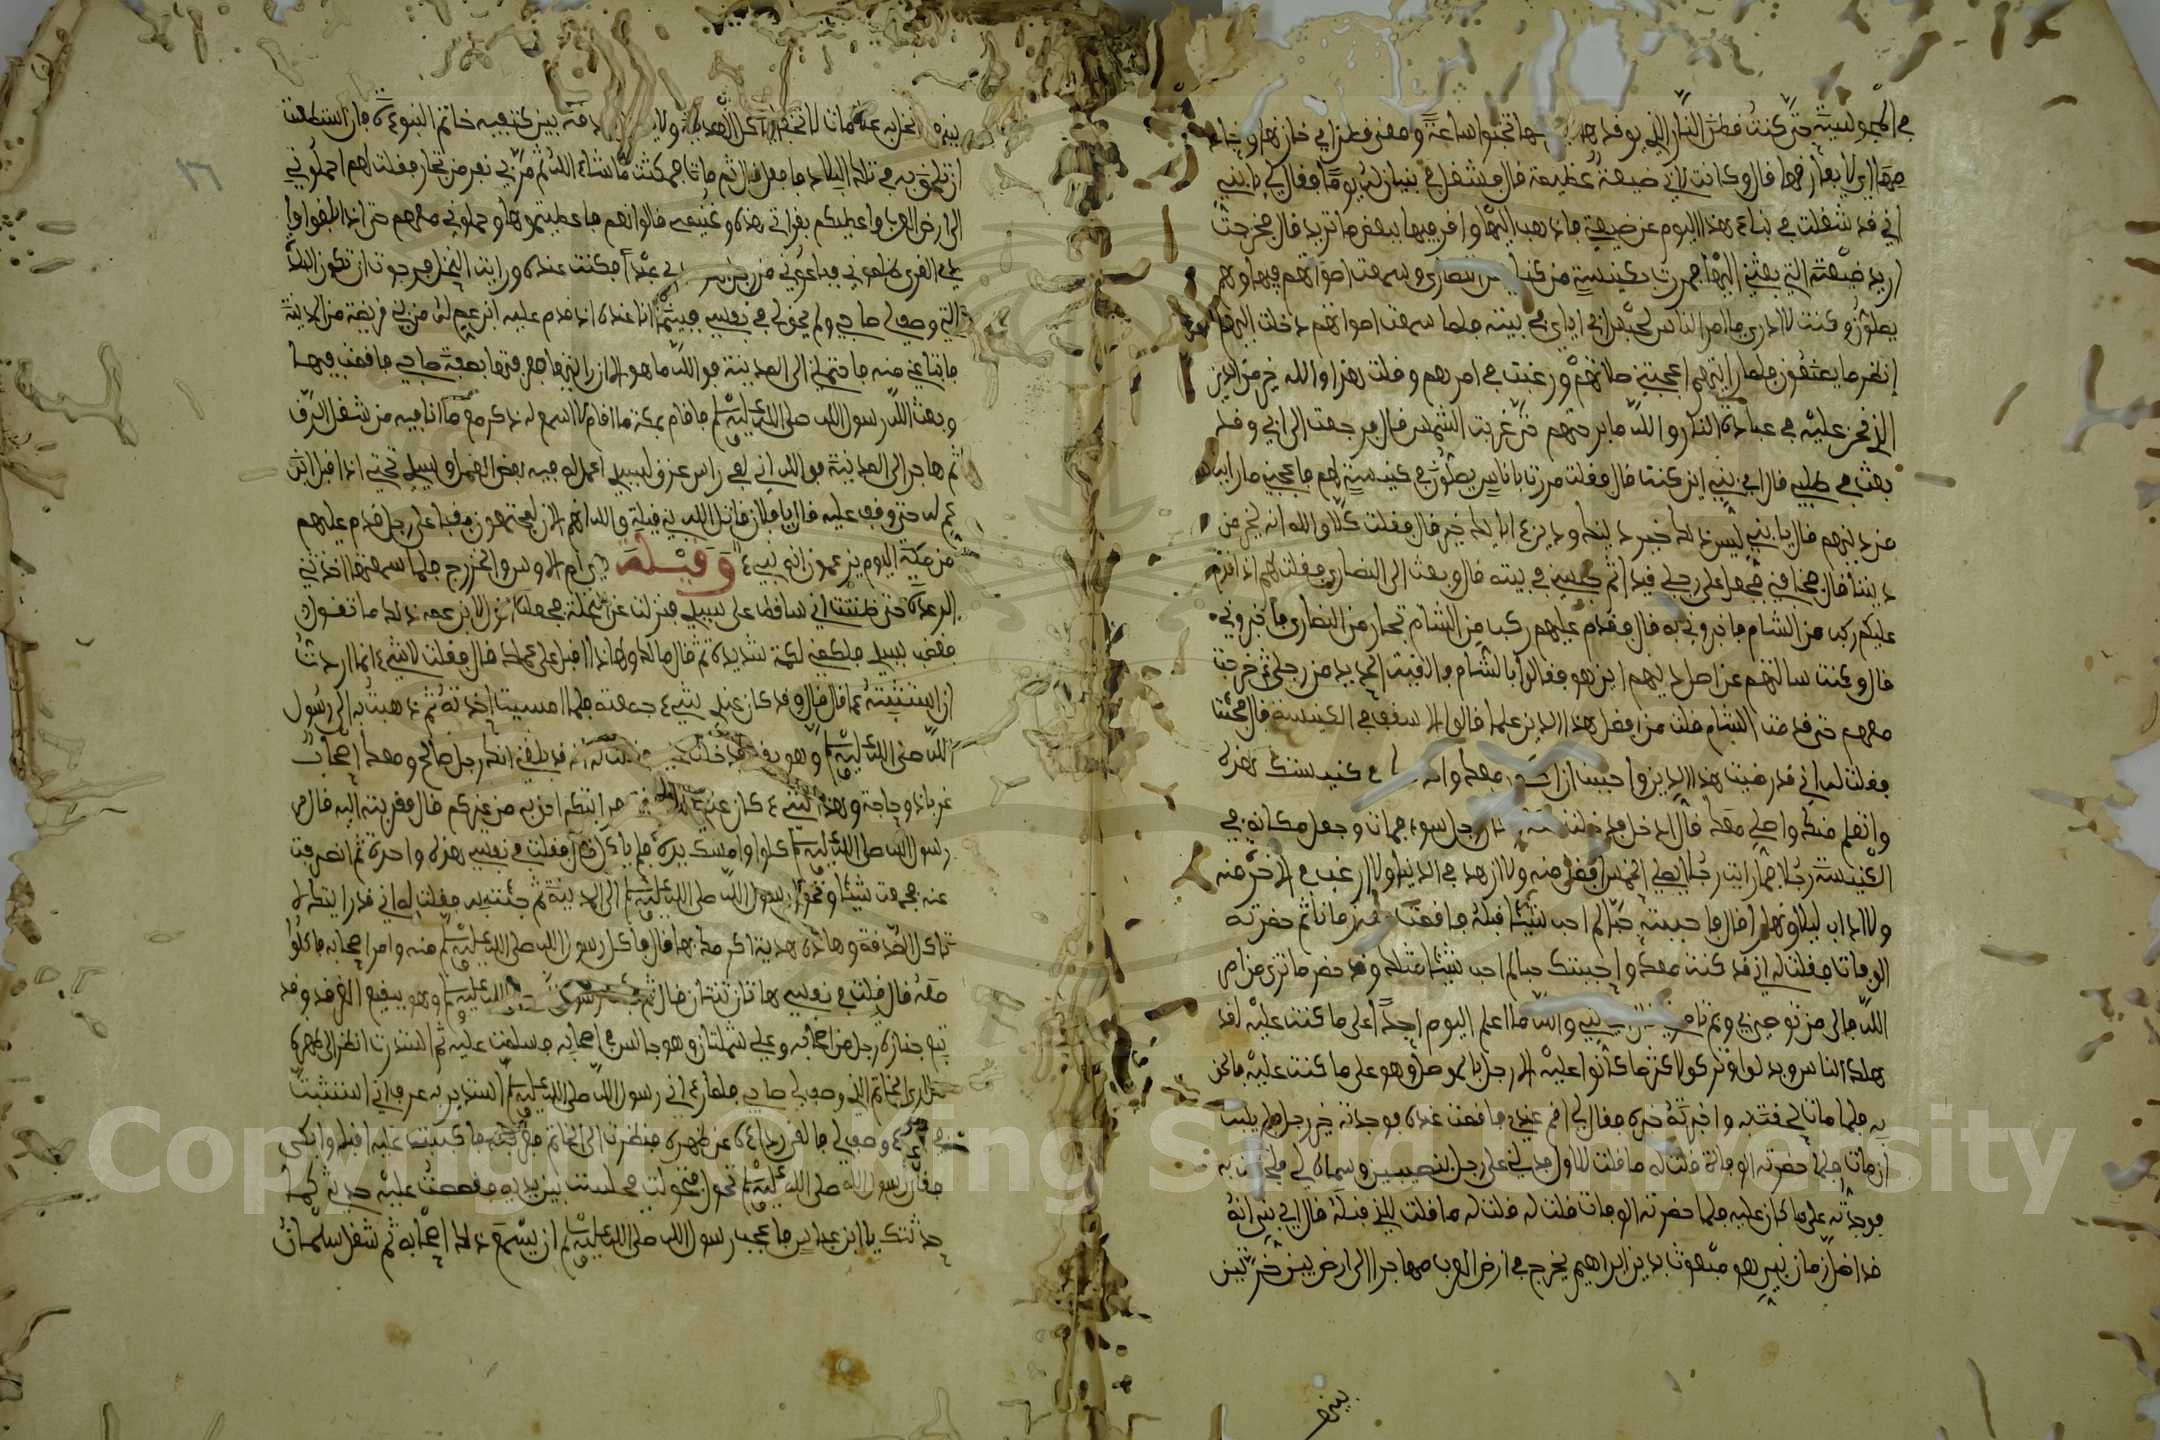 في المجوسية حتى كنت قطن النار الذي يوقدها تخبوا ساعة
قال وكانت لابي ضيعة عظيمة قال فشغل في بنيان له يوما فقال لي يا بني
اني قد شغلت في بناءي هذا اليوم عن ضيعتي فاذهب اليها وامر فيها ببعض ما تريد قال فخرجت
اريد ضيعته التي بعثني اليها فمررت بكنيسة من كنايس النصارى وسمعت اصواتهم فيها وهم
يصلون وكنت لا ادري ما امر الناس لحبس ابي اياي في بيته فلما سمعت اصواتهم دخلت اليهم
انظر ما يصنعون فلما رايتهم اعجبتني صلاتهم ورغبت في امرهم وقلت هذا والله خير من الدين
الذي نحن عليه في عبادة النار والله ما برحتهم حتى غربت الشمس قال فرجعت الى ابي وقد
بعث في طلبي قال اي بني اين كنت قال فقلت مررت باناس يصلون في كنيسة لهم فاعجبني ما رايت
من دينهم قال يا بني ليس ذلك خير دينك ودين ءابايك خير قال فقلت كلا والله انه لخير من
ديننا قال فخافني فجعل على رجلي قيدا ثم حبسني في بيته قال وبعث الى النصارى فقلت لهم اذا قدم
عليكم ركب من الشام فاخبروني به قال فقدم عليهم ركب من الشام تجار من النصارى فاخبروني
قال وكنت سالتهم عن اصل دينهم اين هو فقالوا بالشام والقيت الحديد من رجلي ثم خرجت
معهم حتى قدمت الشام قلت من افضل هذا الدين علما قالوا الاسقف في الكنيسة قال فجئته
فقلت له اني قد رغبت هذا الدين واحببت ان اكون معك كنيستك هذه
واتعلم منك واصلي معك قال ادخل فدخلت رجل سوء فمات وجعل مكانه في
الكنيسة رجلا فما رايت رجلا يصلي الخمس افضل منه ولا ازهد في الدنيا ولا ارغب في الاخرة منه
ولا اداب ليلا ونهارا قال فاحببته حبا لم احب شيئا قبله فاقمت معه زمانا ثم حضرته
الوفاة فقلت له اني قد كنت معك واحببتك حبا لم احب شيئا مثلك وقد حضر ما ترى من امر
الله فالى من توصي بي وبم تامرني قال اي بني والله ما اعلم اليوم احدا على ما كنت عليه لقد
هلك الناس وبدلوا وتركوا اكثر ما كانوا عليه الا رجل بالموصل وهو على ما كنت عليه فالحق
به فلما مات لحقت به واخبرته خبره فقال لي اقم عندي فاقمت عنده فوجدته خير رجل فلم يلبث
ان مات فلما حضرته الوفاة قلت له ما قلت للاول فدلني على رجل بنصيبين وسماه لي فلحقت به
فوجدته على ما كان عليه فلما حضرته الوفاة قلت له ما قلت للذي قبله قال اي بني انه
قد اظل زمان نبي هو مبعوث بدين ابراهيم يخرج في ارض العرب مهاجرا الى ارض بين حرتين
بينهما
بينهما نخل به علامات لا تخفى ياكل الهدية ولا ياكل الصدقة بين كتفيه خاتم النبوءة فان استطعت
ان تلحق به في تلك البلاد فافعل قال ثم مات فمكثت ما شاء الله ثم مر بي نفر من تجار فقلت لهم احملوني
الى ارض العرب واعطيكم بقراتي هذه وغنيمتي قالوا نعم فاعطيتموها وحملوني معهم حتى اذا بلغوا وادي
القرى ظلموني فباعوني من رجل عبدا فكنت عنده ورايت النخل فرجوت ان تكون البلد
الذي وصف لي صاحبي ولم يحق لي في نفسي فبينما انا عنده اذ قدم عليه ابن عم له من بني قريظة من المدينة
فابتاعني منه فاحتملني الى المدينة فوالله ما هو الا ان رايتها فعرفتها بصفة صاحبي فاقمت فيها
وبعث الله رسول الله صلى الله عليه وسلم فاقام بمكة ما اقام لا اسمع له ذكر مع ما انا فيه من شغل الرق
ثم هاجر الى المدينة فوالله اني لفي راس عذق لسيدي اعمل له فيه بعض العمل وسيدي تحتي اذ اقبل ابن
عم له حتى وقف عليه قال يا فلان قاتل الله بني قيلة والله انهم الان لمجتمعون بقباء على رجل قدم عليهم
من مكة اليوم يزعمون انه نبيء وقيلة هي ام الاوس والخزرج فلما سمعتها اخذتني
الرعدة حتى ظننت اني ساقط على سيدي فنزلت عن النخلة فجعلت اقول لابن عمه ذلك ما تقول
فغضب سيدي فلكمني لكمة شديدة ثم قال ما لك ولهاذا اقبل على عملك قال فقلت لا شيء انما اردت
ان استثبته عما قال قال وقد كان عندي شيء جمعته فلما امسيت اخذته ثم ذهبت به الى رسول
الله صلى الله عليه وسلم وهو بقباء فدخلت عليه فقلت له انه قد بلغني انك رجل صالح ومعك اصحاب
غرباء ذو حاجة وهذا شيء كان عندي للصدقة فرايتكم احق به من غيركم قال فقربته اليه فقال
رسول الله صلى الله عليه وسلم كلوا وامسك يده فلم ياكل قال فقلت في نفسي هذه واحدة ثم انصرفت
عنه فجمعت شيئا وتحول رسول الله صلى الله عليه وسلم الى المدينة ثم جئته به فقلت له اني قد رايتك لا
تاكل الصدقة وهاذه هدية اكرمتك بها قال فاكل رسول الله صلى الله عليه وسلم منه وامر اصحابه فاكلوا
معه قال فقلت في نفسي هاتان ثنتان قال ثم جئت رسول الله صلى الله عليه وسلم وهو ببقيع الغرقد وقد
تبع جنازة رجل من اصحابه وعلي شملتان وهو جالس في اصحابه فسلمت عليه ثم استدرت انظر الى ظهره
هل ارى الخاتم الذي وصف لي صاحبي فلما رءاني رسول الله صلى الله عليه وسلم استدبرته عرف اني استثبت
في شيء وصف لي فالقى رداءه عن ظهره فنظرت الى الخاتم فعرفته فاكببت عليه اقبله وابكي
فقال رسول الله صلى الله عليه وسلم تحول فتحولت فجلست بين يديه فقصصت عليه حديثي كما
حدثتك يا ابن عباس فاعجب رسول الله صلى الله عليه وسلم ان يسمع ذلك اصحابه ثم شغل سلمان
Copyright © King Saud University